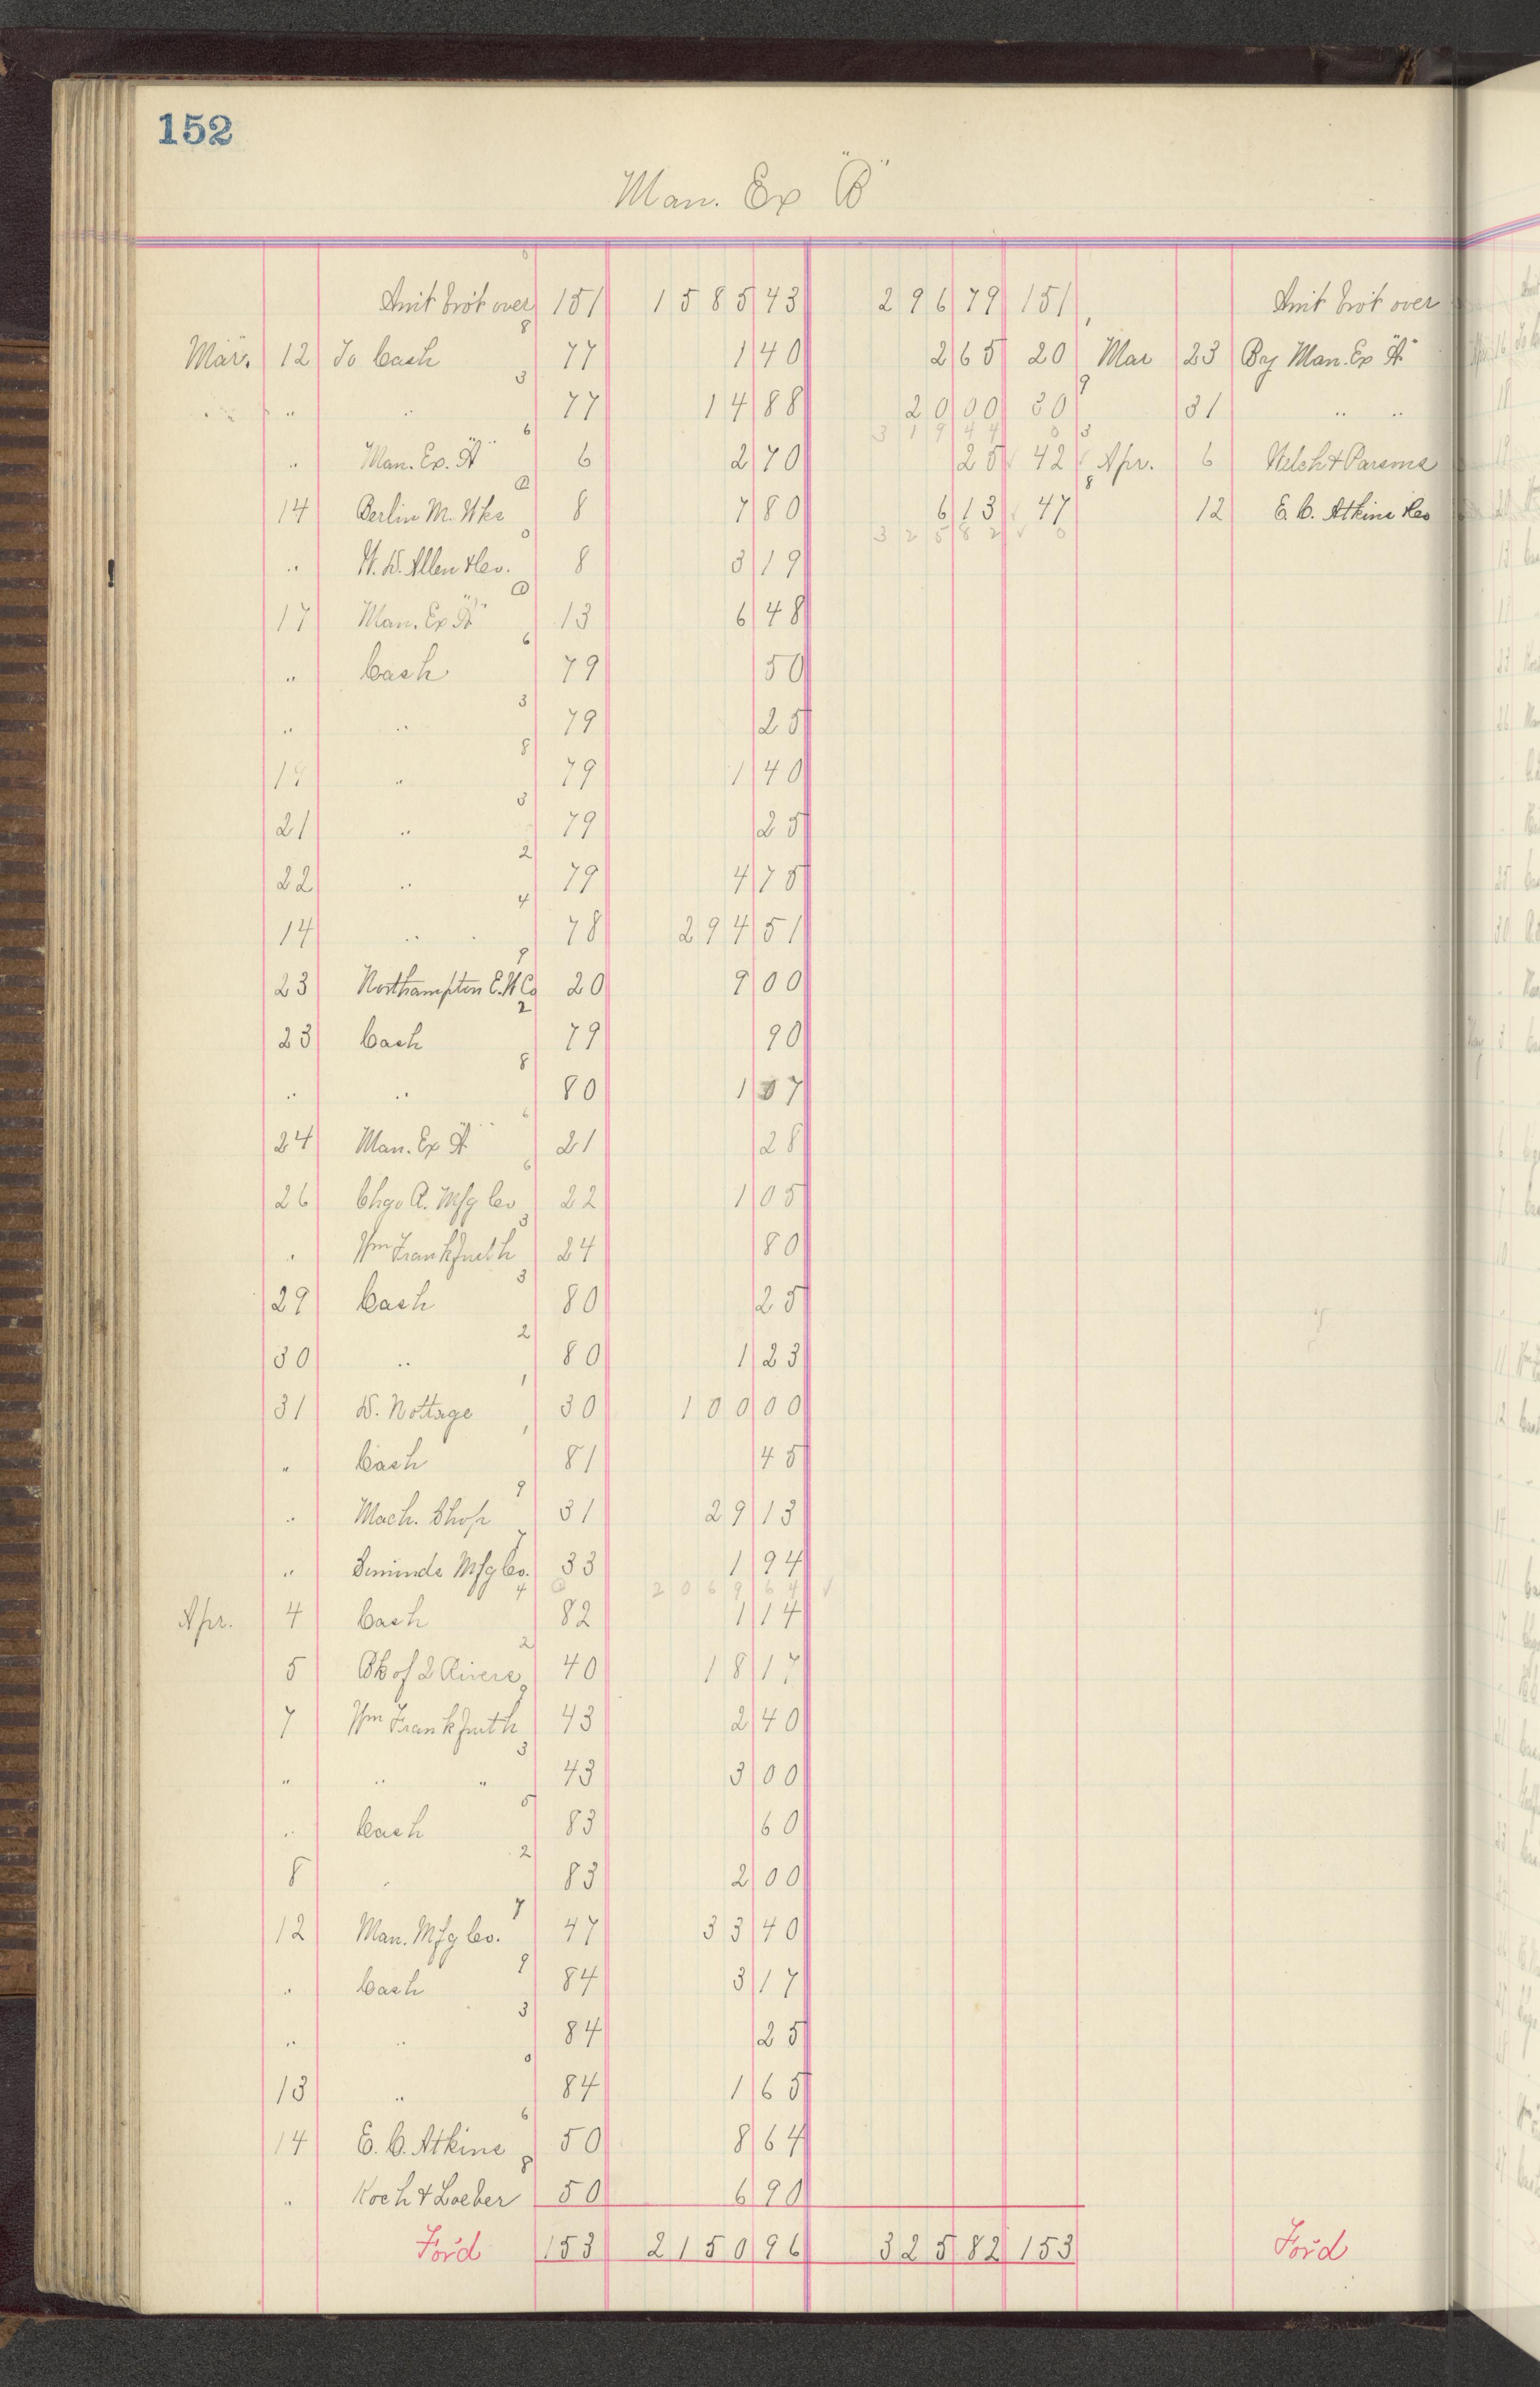 152
Man. Ex "B"
Amt brôt over 151 1585 43 296 79 151 Amt brôt over
Mar. 12 To Cash 77 1 40 2 65 20 Mar 23 By Man. Ex "A"
" " 77 14 88 20 00 30 31 " "
3 19 44
" Man. Ex. "A" 6 2 70 25 42 Apr. 6 Welch & Parsons
14 Berlin M. Wks 8 7 80 6 13 47 12 E. C. Atkins & Co
3 25 82
" W. D. Allen & Co. 8 3 19
17 Man. Ex "A" 13 6 48
" Cash 79 50
" " 79 25
19 " 79 1 40
21 " 79 25
22 " 79 4 75
14 " 78 294 51
23 Northampton E. W Co 20 9 00
23 Cash 79 90
" " 80 1 07
24 Man. Ex "A" 21 28
26 Chgo R. Mfg Co 22 1 05
" Wm Frankfurth 24 80
29 Cash 80 25
30 " 80 1 23
31 D. Nottage 30 100 00
" Cash 81 45
" Mach. Shop 31 29 13
" Siminds Mfg Co. 33 1 94
2069 64
Apr. 4 Cash 82 1 14
5 Bk of 2 Rivers 40 18 17
7 Wm Frankfurth 43 2 40
" " " 43 3 00
" Cash 83 60
8 " 83 2 00
12 Man. Mfg Co. 47 33 40
" Cash 84 3 17
" " 84 25
13 " 84 1 65
14 E. C. Atkins 50 8 64
" Koch & Loeber 50 6 90
For'd 153 2150 96 325 82 153 For'd